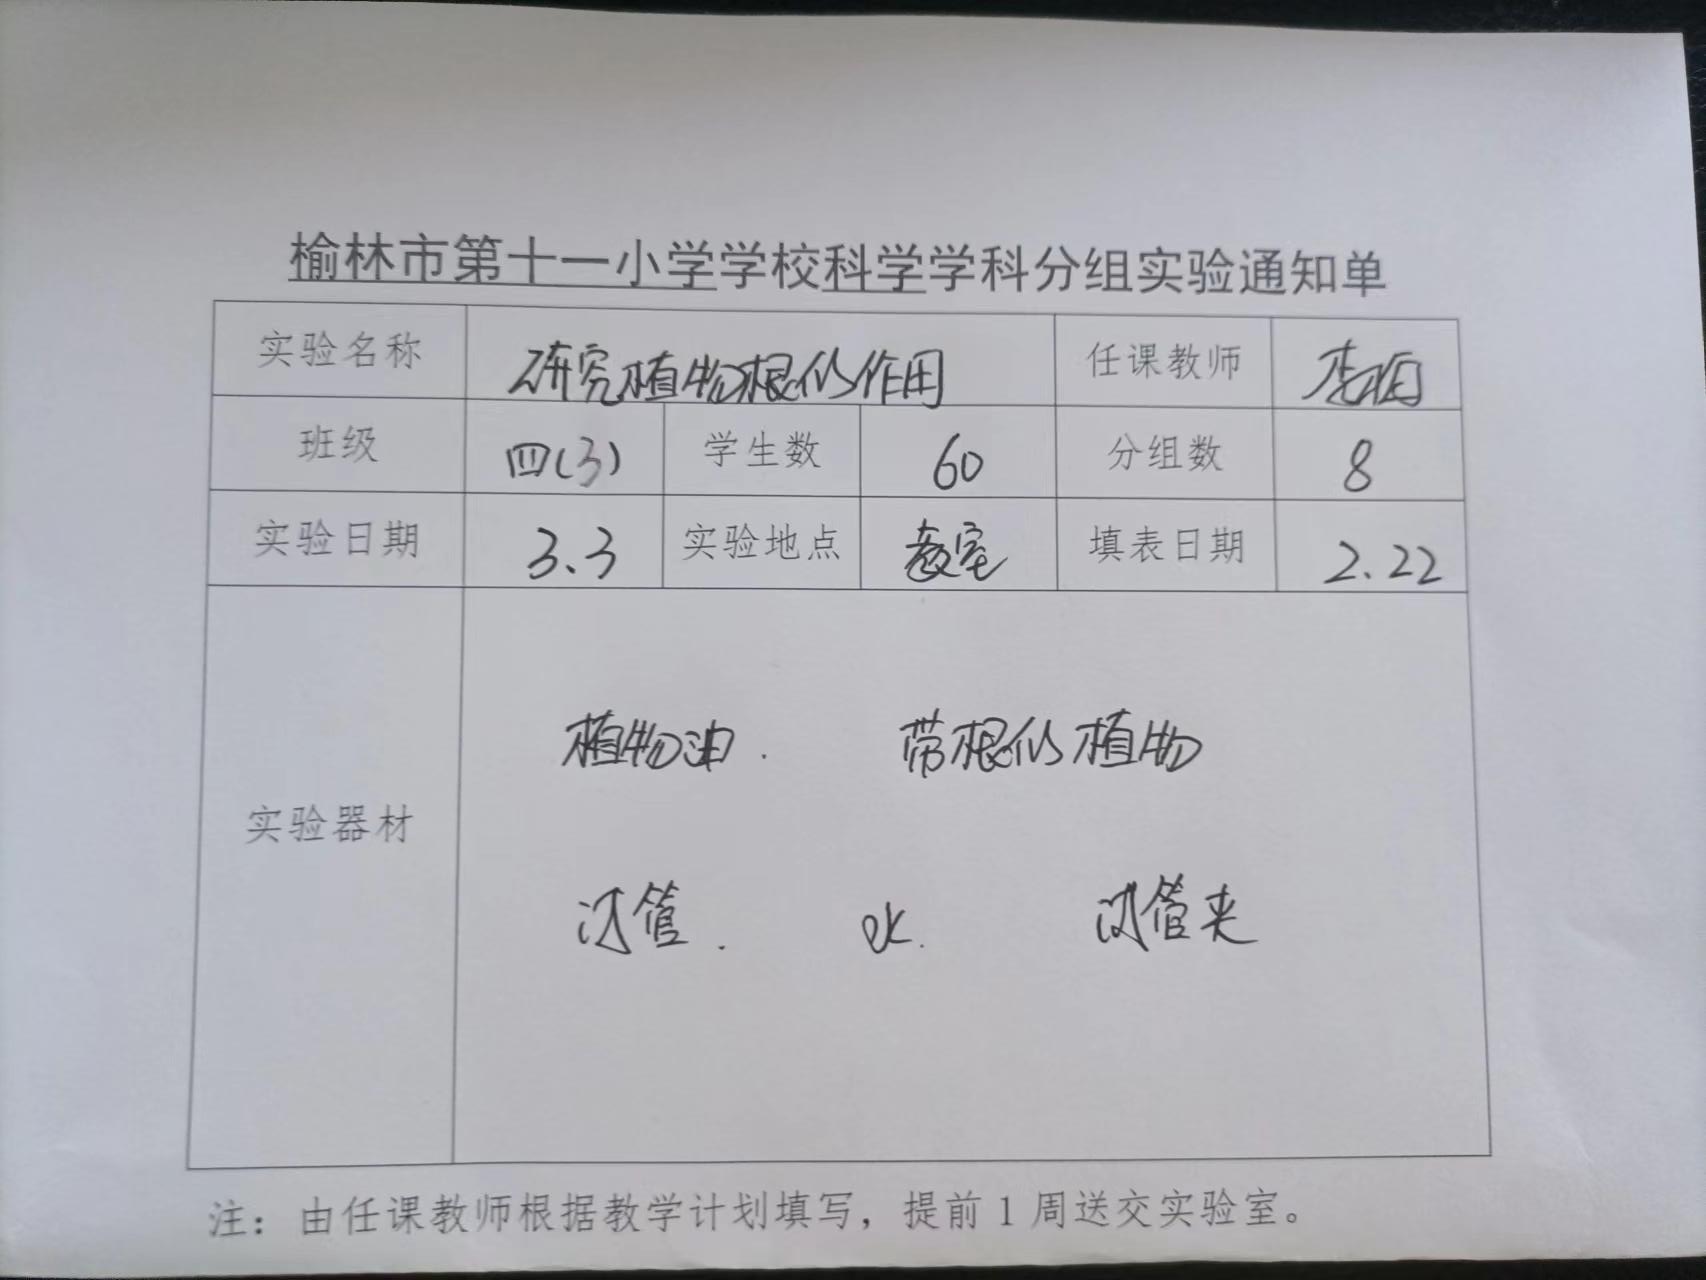 榆林市第十一小学学校科学学科分组实验通知单
实验名称 研究植物根的作用 任课教师 李梅
班级 四(3) 学生数 60 分组数 8
实验日期 3.3 实验地点 教室 填表日期 2.22
植物油. 带根的植物
实验器材
试管. 水. 试管夹
注：由任课教师根据教学计划填写，提前1周送交实验室。